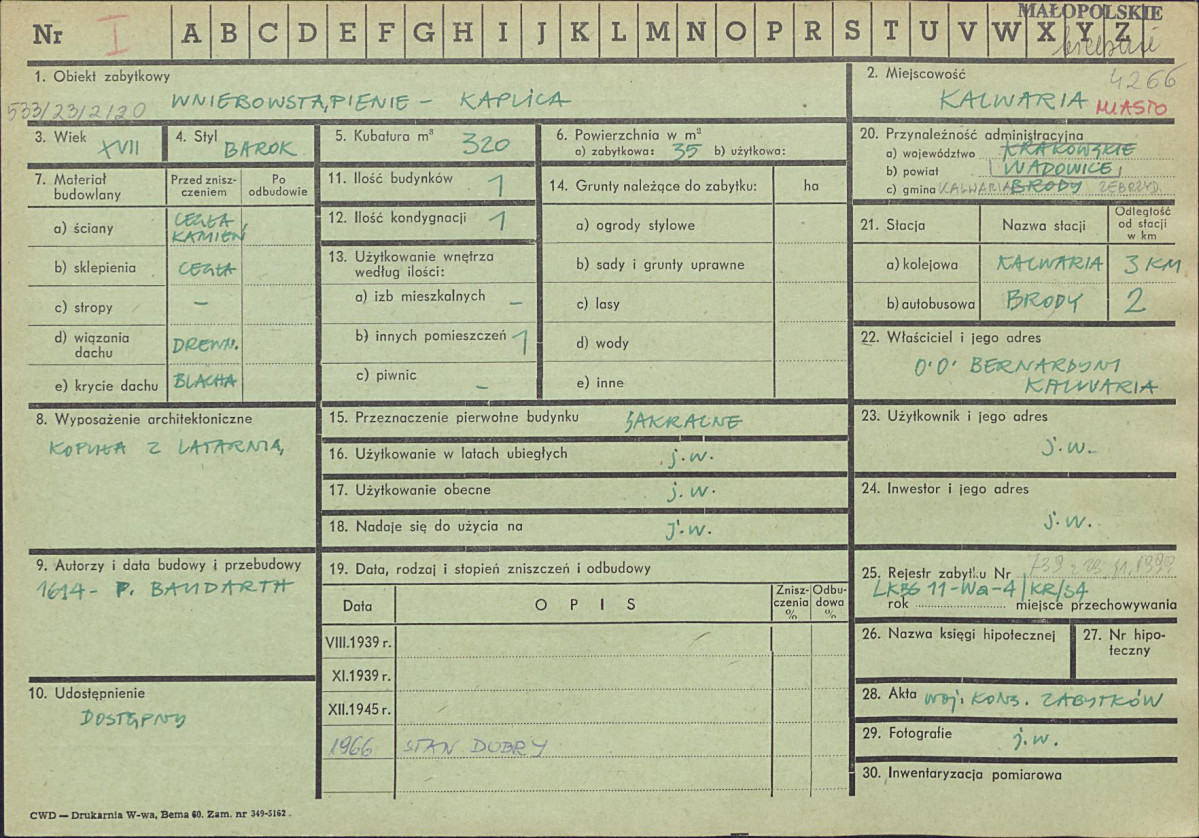 MAŁOPOLSKIE
Nr I A B C D E F G H I J K L M N O P R S T U V W X Y Z
1. Obiekt zabytkowy
533/23/2/20
WNIEBOWSTĄPIENIE – KAPLICA
2. Miejscowość
4266
KALWARIA MIASTO
3. Wiek XVII
4. Styl BAROK
5. Kubatura m³ 320
6. Powierzchnia w m²
a) zabytkowa: 35 b) użytkowa:
7. Materiał budowlany
Przed zniszczeniem
Po odbudowie
a) ściany CEGŁA
KAMIEŃ
b) sklepienia CEGŁA
c) stropy –
d) wiązania dachu DREWN.
e) krycie dachu BLACHA
8. Wyposażenie architektoniczne
KOPUŁA Z LATARNIĄ
9. Autorzy i data budowy i przebudowy
1614 - P. BAUDARTH
10. Udostępnienie
DOSTĘPNY
11. Ilość budynków 1
12. Ilość kondygnacji 1
13. Użytkowanie wnętrza
według ilości:
a) izb mieszkalnych –
b) innych pomieszczeń 1
c) piwnic –
14. Grunty należące do zabytku: ha
a) ogrody stylowe
b) sady i grunty uprawne
c) lasy
d) wody
e) inne
15. Przeznaczenie pierwotne budynku SAKRALNE
16. Użytkowanie w latach ubiegłych j.w.
17. Użytkowanie obecne j.w.
18. Nadaje się do użycia na j.w.
19. Data, rodzaj i stopień zniszczeń i odbudowy
Data OPIS Zniszczenia % Odbudowa %
VIII.1939 r.
XI.1939 r.
XII.1945 r.
1966 STAN DOBRY
20. Przynależność administracyjna
a) województwo KRAKOWSKIE
b) powiat WADOWICE
c) gmina KALWARIA BRODY ZEBRZYD.
21. Stacja Nazwa stacji Odległość od stacji w km
a) kolejowa KALWARIA 3 KM
b) autobusowa BRODY 2
22. Właściciel i jego adres
O'O' BERNARDYNI
KALWARIA
23. Użytkownik i jego adres
j.w.
24. Inwestor i jego adres
j.w.
25. Rejestr zabytku Nr
LKBS 11-Wa-4/KR/54
rok miejsce przechowywania
26. Nazwa księgi hipotecznej
27. Nr hipoteczny
28. Akta WOJ. KONS. ZABYTKÓW
29. Fotografie j.w.
30. Inwentaryzacja pomiarowa
CWD — Drukarnia W-wa, Bema 60. Zam. nr 349-5162.